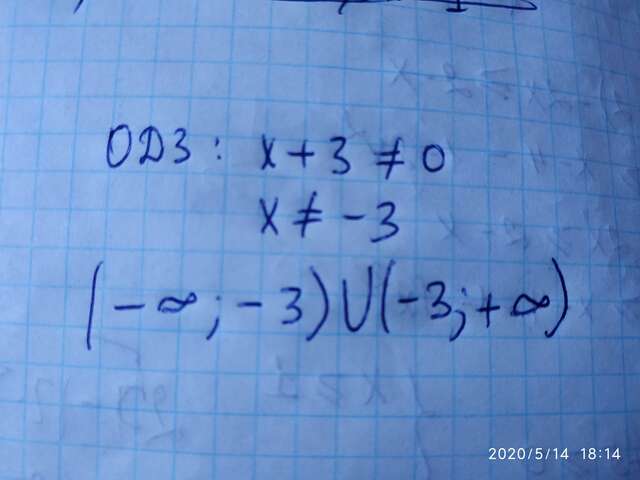 ОДЗ: x + 3 ≠ 0
x ≠ -3
(-∞; -3) ∪ (-3; +∞)
2020/5/14 18:14